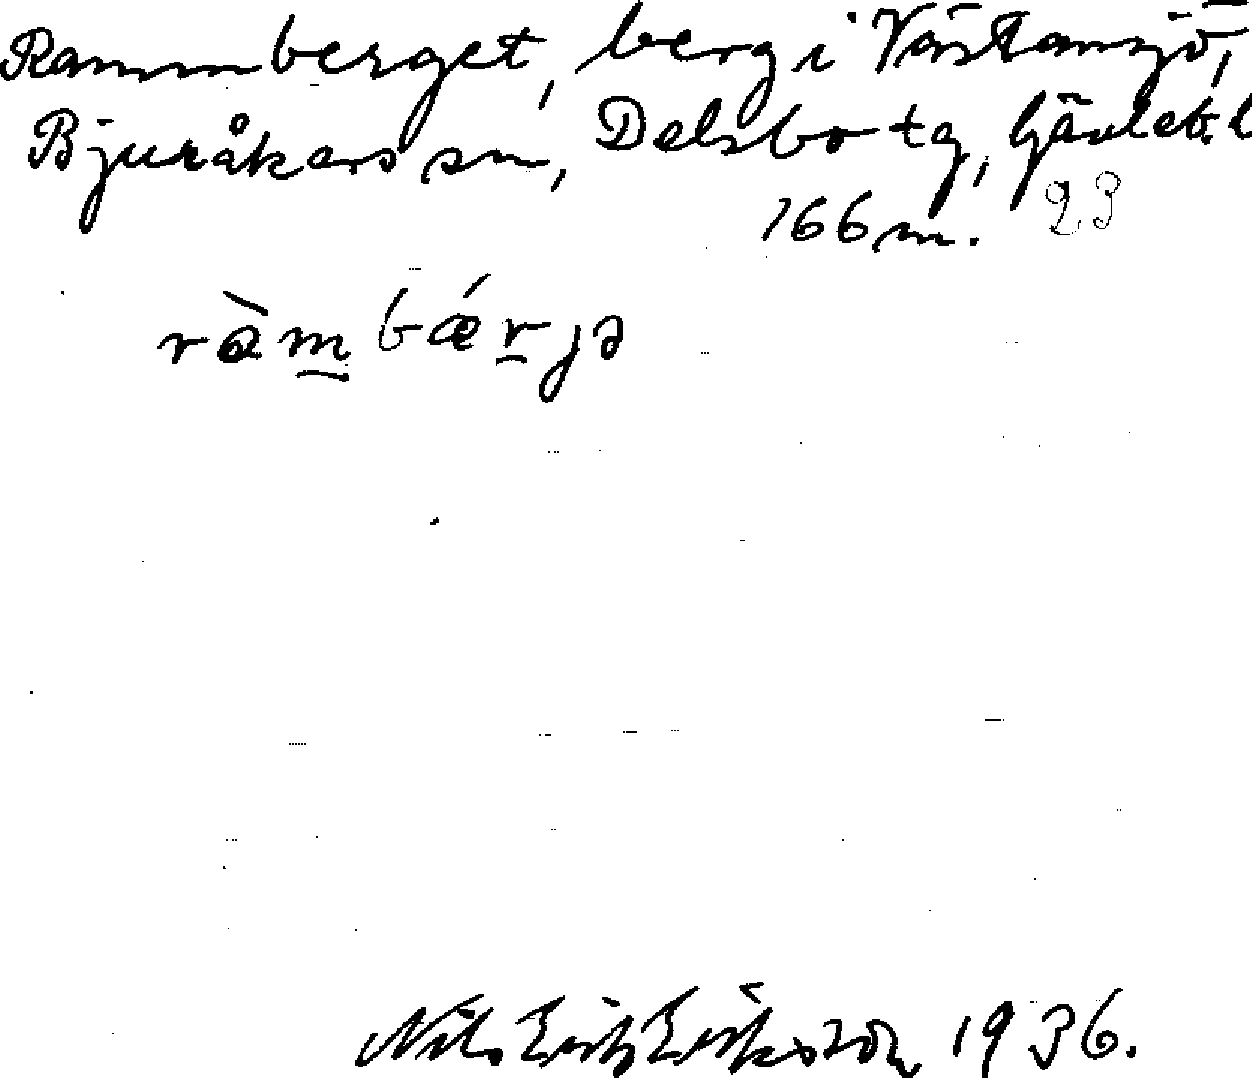 Rammberget, berg i Västansjö,
Bjuråkers sn, Delsbo tg, Gävleb. l
166 m. 23
ràm̲bǽr̲jə
Nils Erik Eriksson 1936.